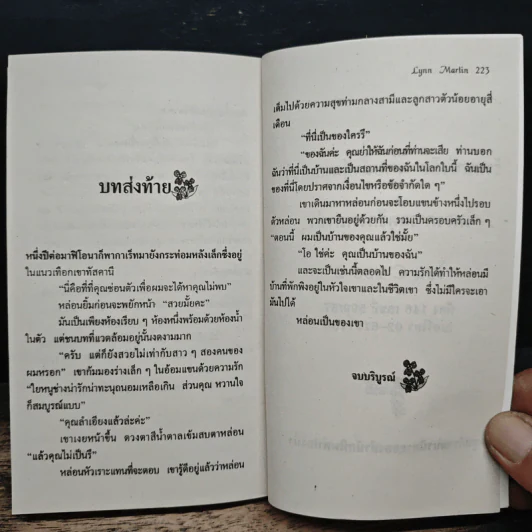 บทส่งท้าย
หนึ่งปีต่อมาฟิโอนาก็พาการ์เร็ทมายังกระท่อมหลังเล็กซึ่งอยู่
ในแนวเทือกเขาทัสคานี
“นี่คือที่ที่คุณซ่อนตัวเพื่อผมจะได้หาคุณไม่พบ”
หล่อนยิ้มก่อนจะพยักหน้า “สวยมั้ยคะ”
มันเป็นเพียงห้องเรียบ ๆ ห้องหนึ่งพร้อมด้วยห้องน้ำ
ในตัว แต่ชนบทที่แวดล้อมอยู่นั้นงดงามมาก
“ครับ แต่ก็ยังสวยไม่เท่ากับสาว ๆ สองคนของ
ผมหรอก” เขาก้มมองร่างเล็ก ๆ ในอ้อมแขนด้วยความรัก
“ใยหนูช่างน่ารักน่าทะนุถนอมเหลือเกิน ส่วนคุณ หวานใจ
ก็สมบูรณ์แบบ”
“คุณลำเอียงแล้วล่ะค่ะ”
เขาเงยหน้าขึ้น ดวงตาสีน้ำตาลเข้มสบตาหล่อน
“แล้วคุณไม่เป็นรึ”
หล่อนหัวเราะแทนที่จะตอบ เขารู้ดีอยู่แล้วว่าหล่อน
Lynn Martin 223
เต็มไปด้วยความสุขท่ามกลางสามีและลูกสาวตัวน้อยอายุสี่
เดือน
“ที่นี่เป็นของใครรึ”
“ของฉันค่ะ คุณย่าให้ฉันก่อนที่ท่านจะเสีย ท่านบอก
ฉันว่าที่นี่เป็นบ้านและเป็นสถานที่ของฉันในโลกใบนี้ ฉันเป็น
ของที่นี่โดยปราศจากเงื่อนไขหรือข้อจำกัดใด ๆ”
เขาเดินมาหาหล่อนก่อนจะโอบแขนข้างหนึ่งไปรอบ
ตัวหล่อน พวกเขายืนอยู่ด้วยกัน รวมเป็นครอบครัวเล็ก ๆ
“ตอนนี้ ผมเป็นบ้านของคุณแล้วใช่มั้ย”
“โอ ใช่ค่ะ คุณเป็นบ้านของฉัน”
และจะเป็นเช่นนี้ตลอดไป ความรักได้ทำให้หล่อนมี
บ้านที่พักพิงอยู่ในหัวใจเขาและในชีวิตเขา ซึ่งไม่มีใครจะเอา
มันไปได้
หล่อนเป็นของเขา
จบบริบูรณ์